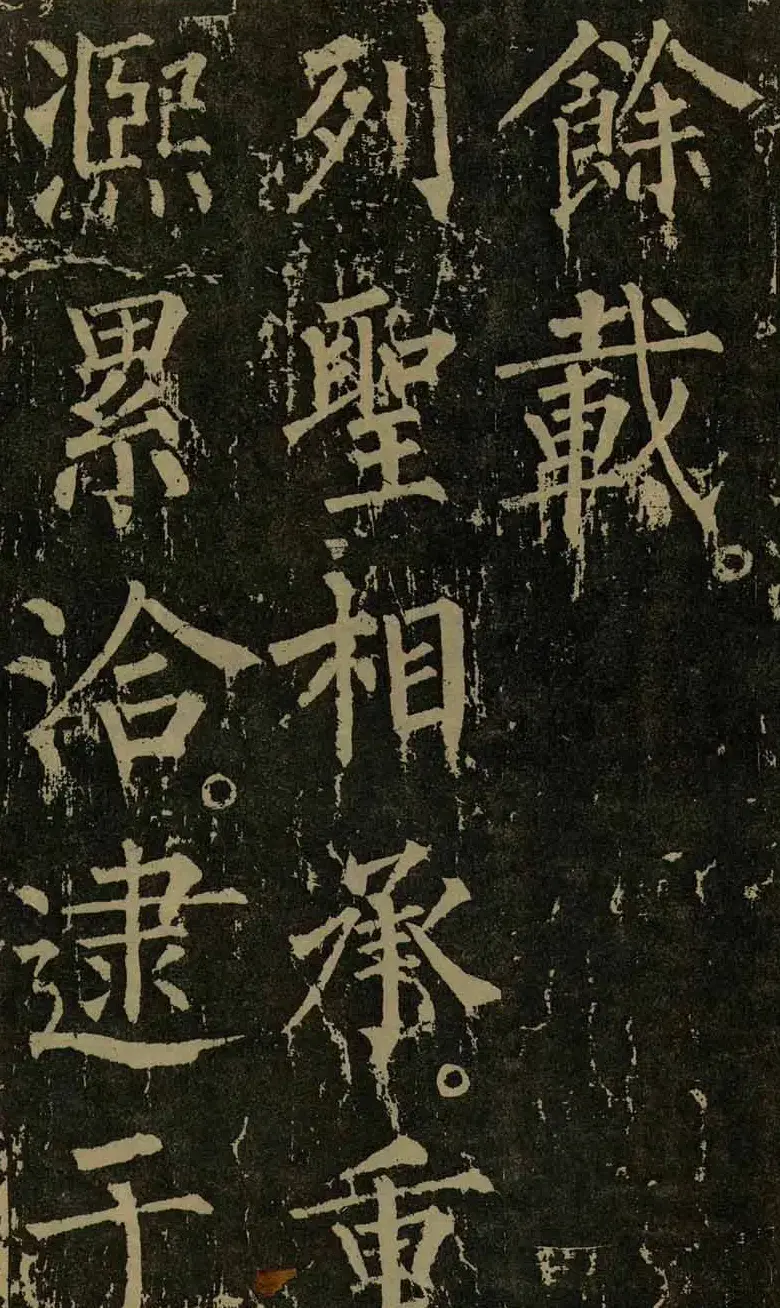 餘載。
列聖相承。重
熈累洽。逮于